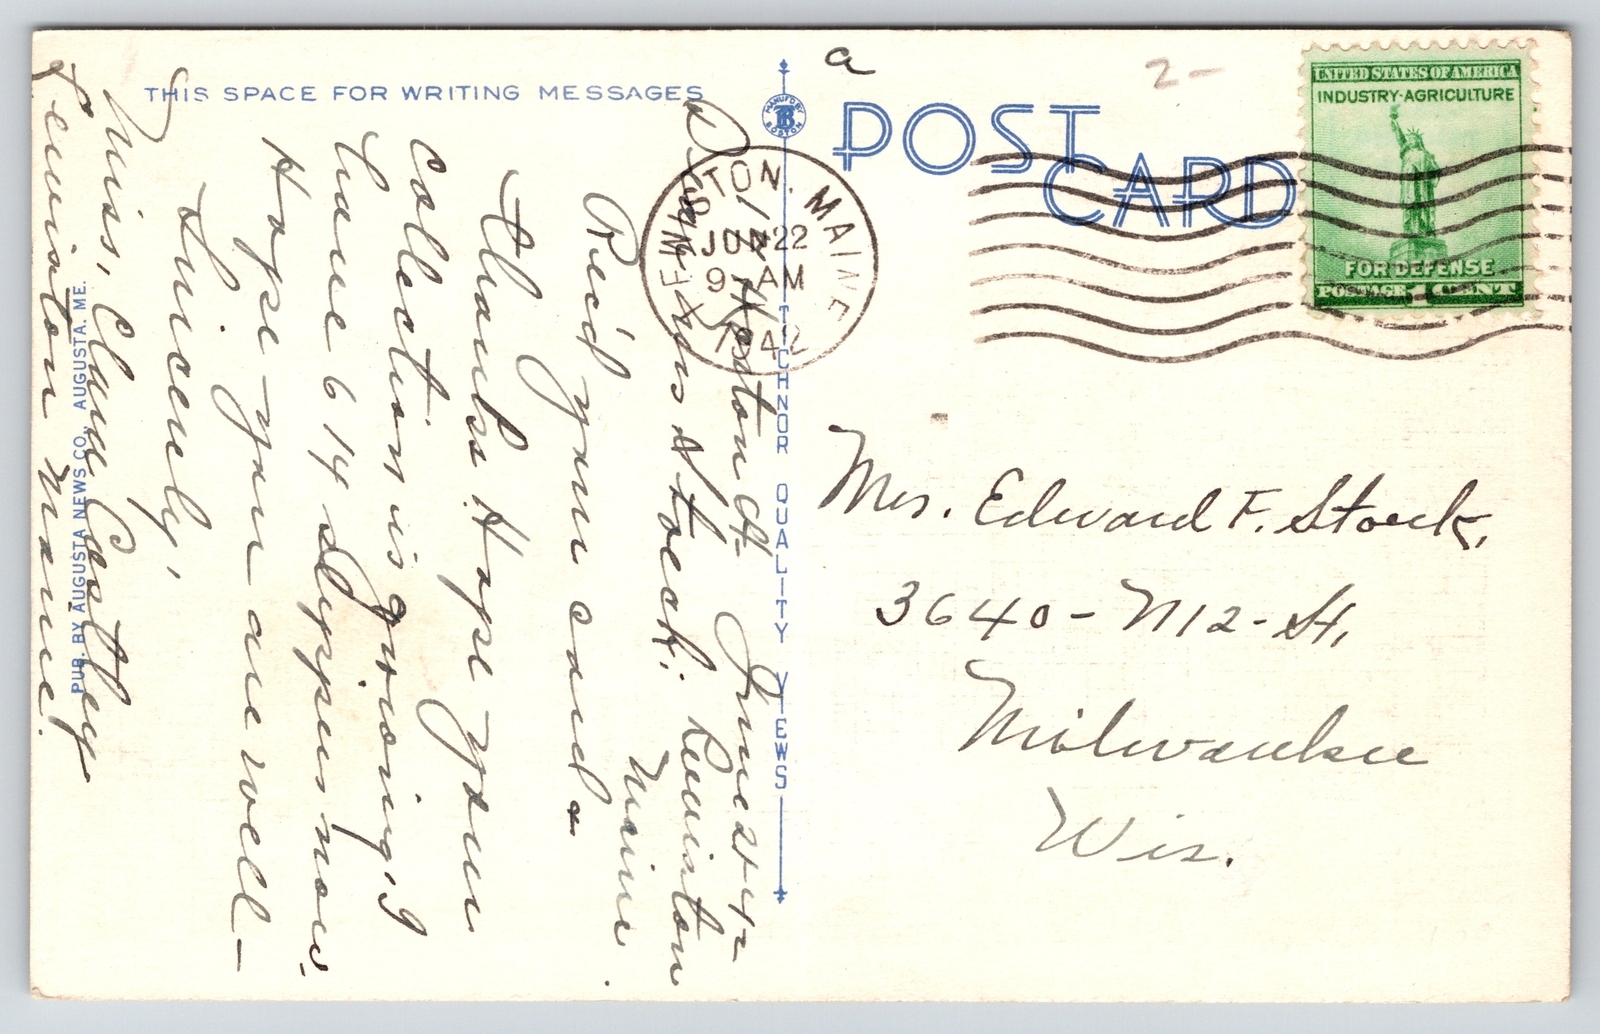 THIS SPACE FOR WRITING MESSAGES
POST CARD
MANUF'D BY
BOSTON
TICHNOR QUALITY VIEWS
PUB. BY AUGUSTA NEWS CO., AUGUSTA, ME.
UNITED STATES OF AMERICA
INDUSTRY-AGRICULTURE
FOR DEFENSE
POSTAGE 1 CENT
TON, MAINE
JUN 22
9 AM
1942
a
2-
Mrs. Edward F. Stoeck,
3640-N12-St,
Milwaukee
Wis.
St. June 21-42
Dear Mrs Stoeck: Lewiston
Maine.
Rec'd your card &
thanks. Hope your
collection is growing, I
have 614 Slippers now.
Hope you are well-
Sincerely,
Miss,
Lewiston Maine.